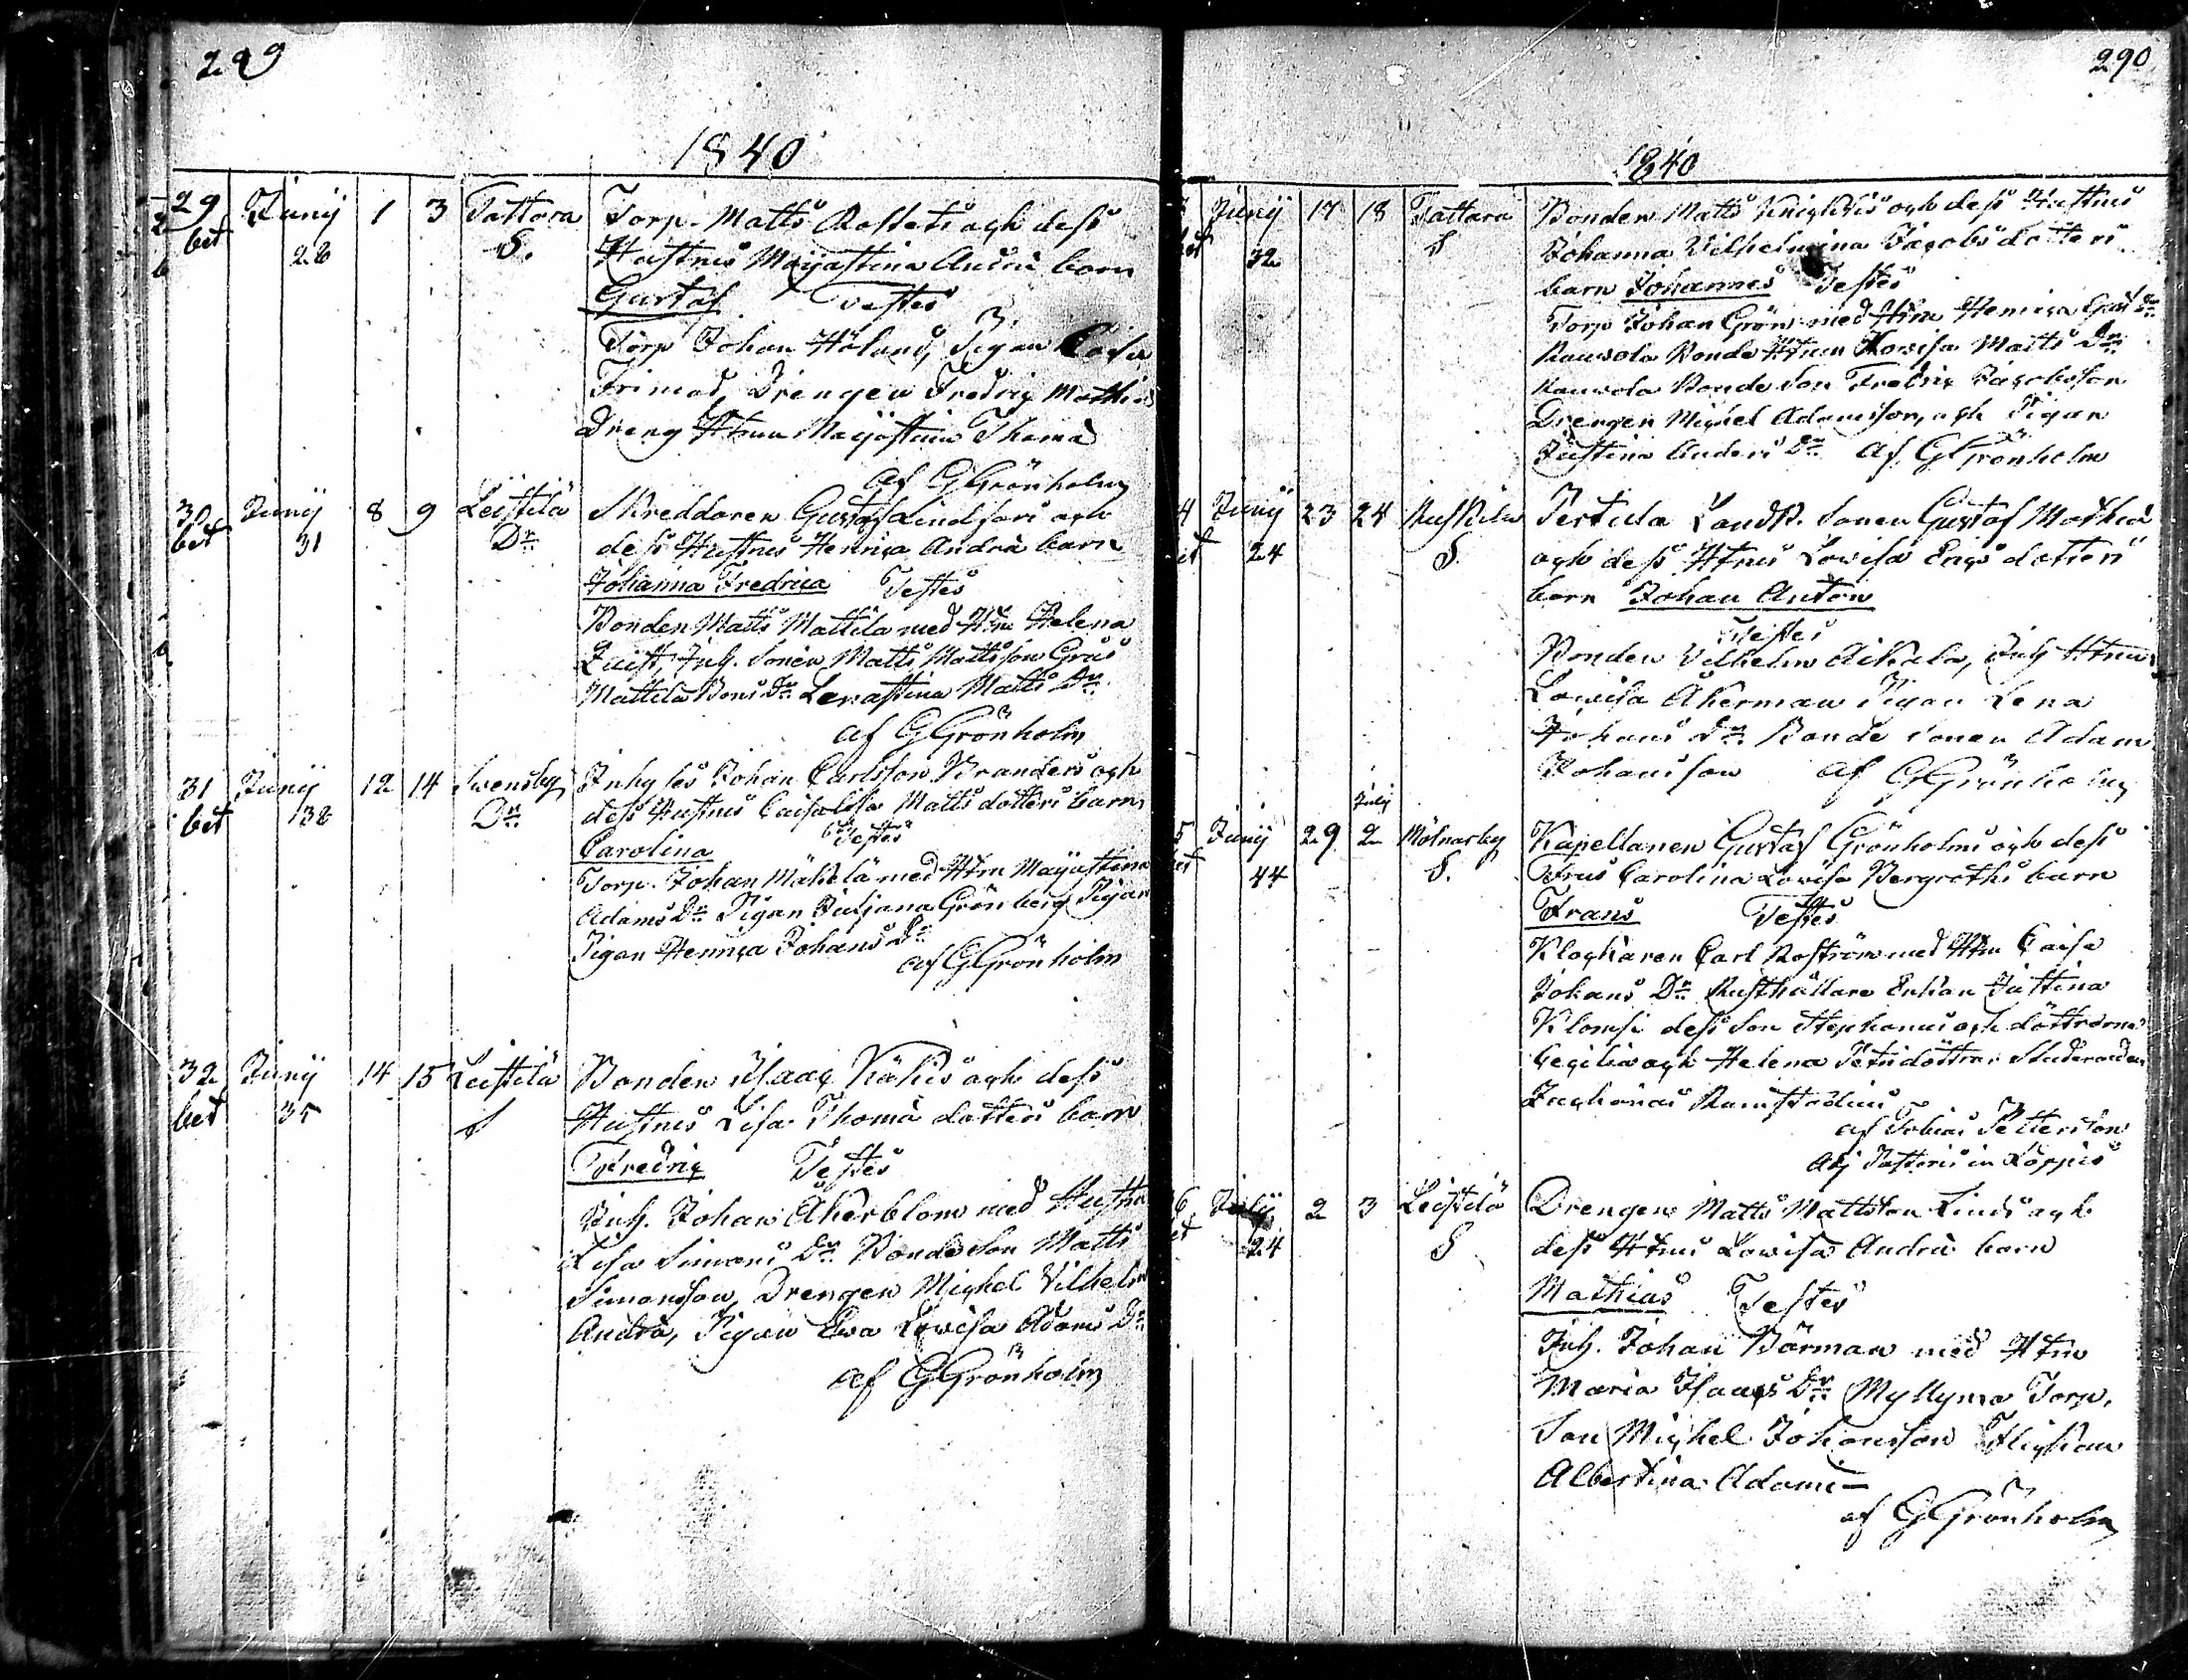 289
1840
29 Junij 1 3 Tattara Torp. Matts Rostets och dess
bet 28 S. Hustrus Majastina Andrä barn
Gustaf Testes
Torp Johan Hölund, Pigan Caisa
Trimod, Drengen Fredric Mathiæ
Dreng Htrun Majastina Thomæ
af G Grönholm
30 Junij 8 9 Leistilä Skreddaren Gustaf Lindfors och
bet 31 Dr dess Hustrus Henrica Andrä barn
Johanna Fredrica Testes
Bonden Matts Mattila med Htru Helena
Inh. Sonen Matts Mattsson Grås
Mattila Bons Dr Lenastina Matts Dr
af G Grönholm
31 Junij 12 14 Svensby Inhyses Johan Carlsson Branders och
bet 38 Dr dess Hustrus Caisa Lisa Matts dotters barn
Carolina Testes
Torp. Johan Mäkelä med Htru Majastina
Adams Dr Pigan Juljana Grönberg Pigan
Pigan Henrica Johans Dr
af G Grönholm
32 Junij 14 15 Leistilä Bonden Isaac Kähis och dess
bet 35 S Hustrus Lisa Thomæ dotters barn
Fredric Testes
Inh. Johan Åkerblom med Hustru
Lisa Simons Dr Bonde Son Matts
Simonsson, Drengen Michel Vilhelm
Andrä, Pigan Eva Lovisa Adams Dr
af G Grönholm
290
1840
Junij 17 18 Tattara Bonden Matts Knichtis och dess Hustrus
32 S Johanna Vilhelmina Jacobs dotters
barn Johannes Testes
Torp Johan Grön med Htru Henrica Gust Dr
Rauvola Bonde Htrun Lovisa Matts Dr
Rauvola Bonde Son Fredric Jacobsson
Drengen Michel Adamsson, och Pigan
Justina Anders Dr af G Grönholm
4 Junij 23 24 Pertula Landb. Sonen Gustaf Mathiæ
24 S. och dess Htrus Lovisa Erics dotters
barn Johan Anton
Testes
Bonden Vilhelm Äikala, Inh Htrun
Lovisa Åkerman Pigan Lena
Johans Dr Bonde sonen Adam
Johansson af G Grönholm
July
5 Junij 29 2 Molnarby Kapellanen Gustaf Grönholms och dess
44 S. Frus Carolina Lovisa Bergroths barn
Frans Testes
Klockaren Carl Roström med Htru Caisa
Johans Dr Rusthållare Enkan Justina
Klomsi dess Son Stephanus och döttrarne
Cecilia och Helena Petri döttrar Studeranden
Zacharias Ramstadius
af Tobias Petterson
Adj Pastoris in Koppis
6 Julij 2 3 Leistilä Drengen Matts Mattsson Linds och
24 S dess Htrus Lovisa Andrä barn
Mathias Testes
Inh. Johan Börman med Htru
Maria Isaacs Dr Myllyma Torp.
Son Michel Johansson Flickan
Albertina Adami
af G Grönholm